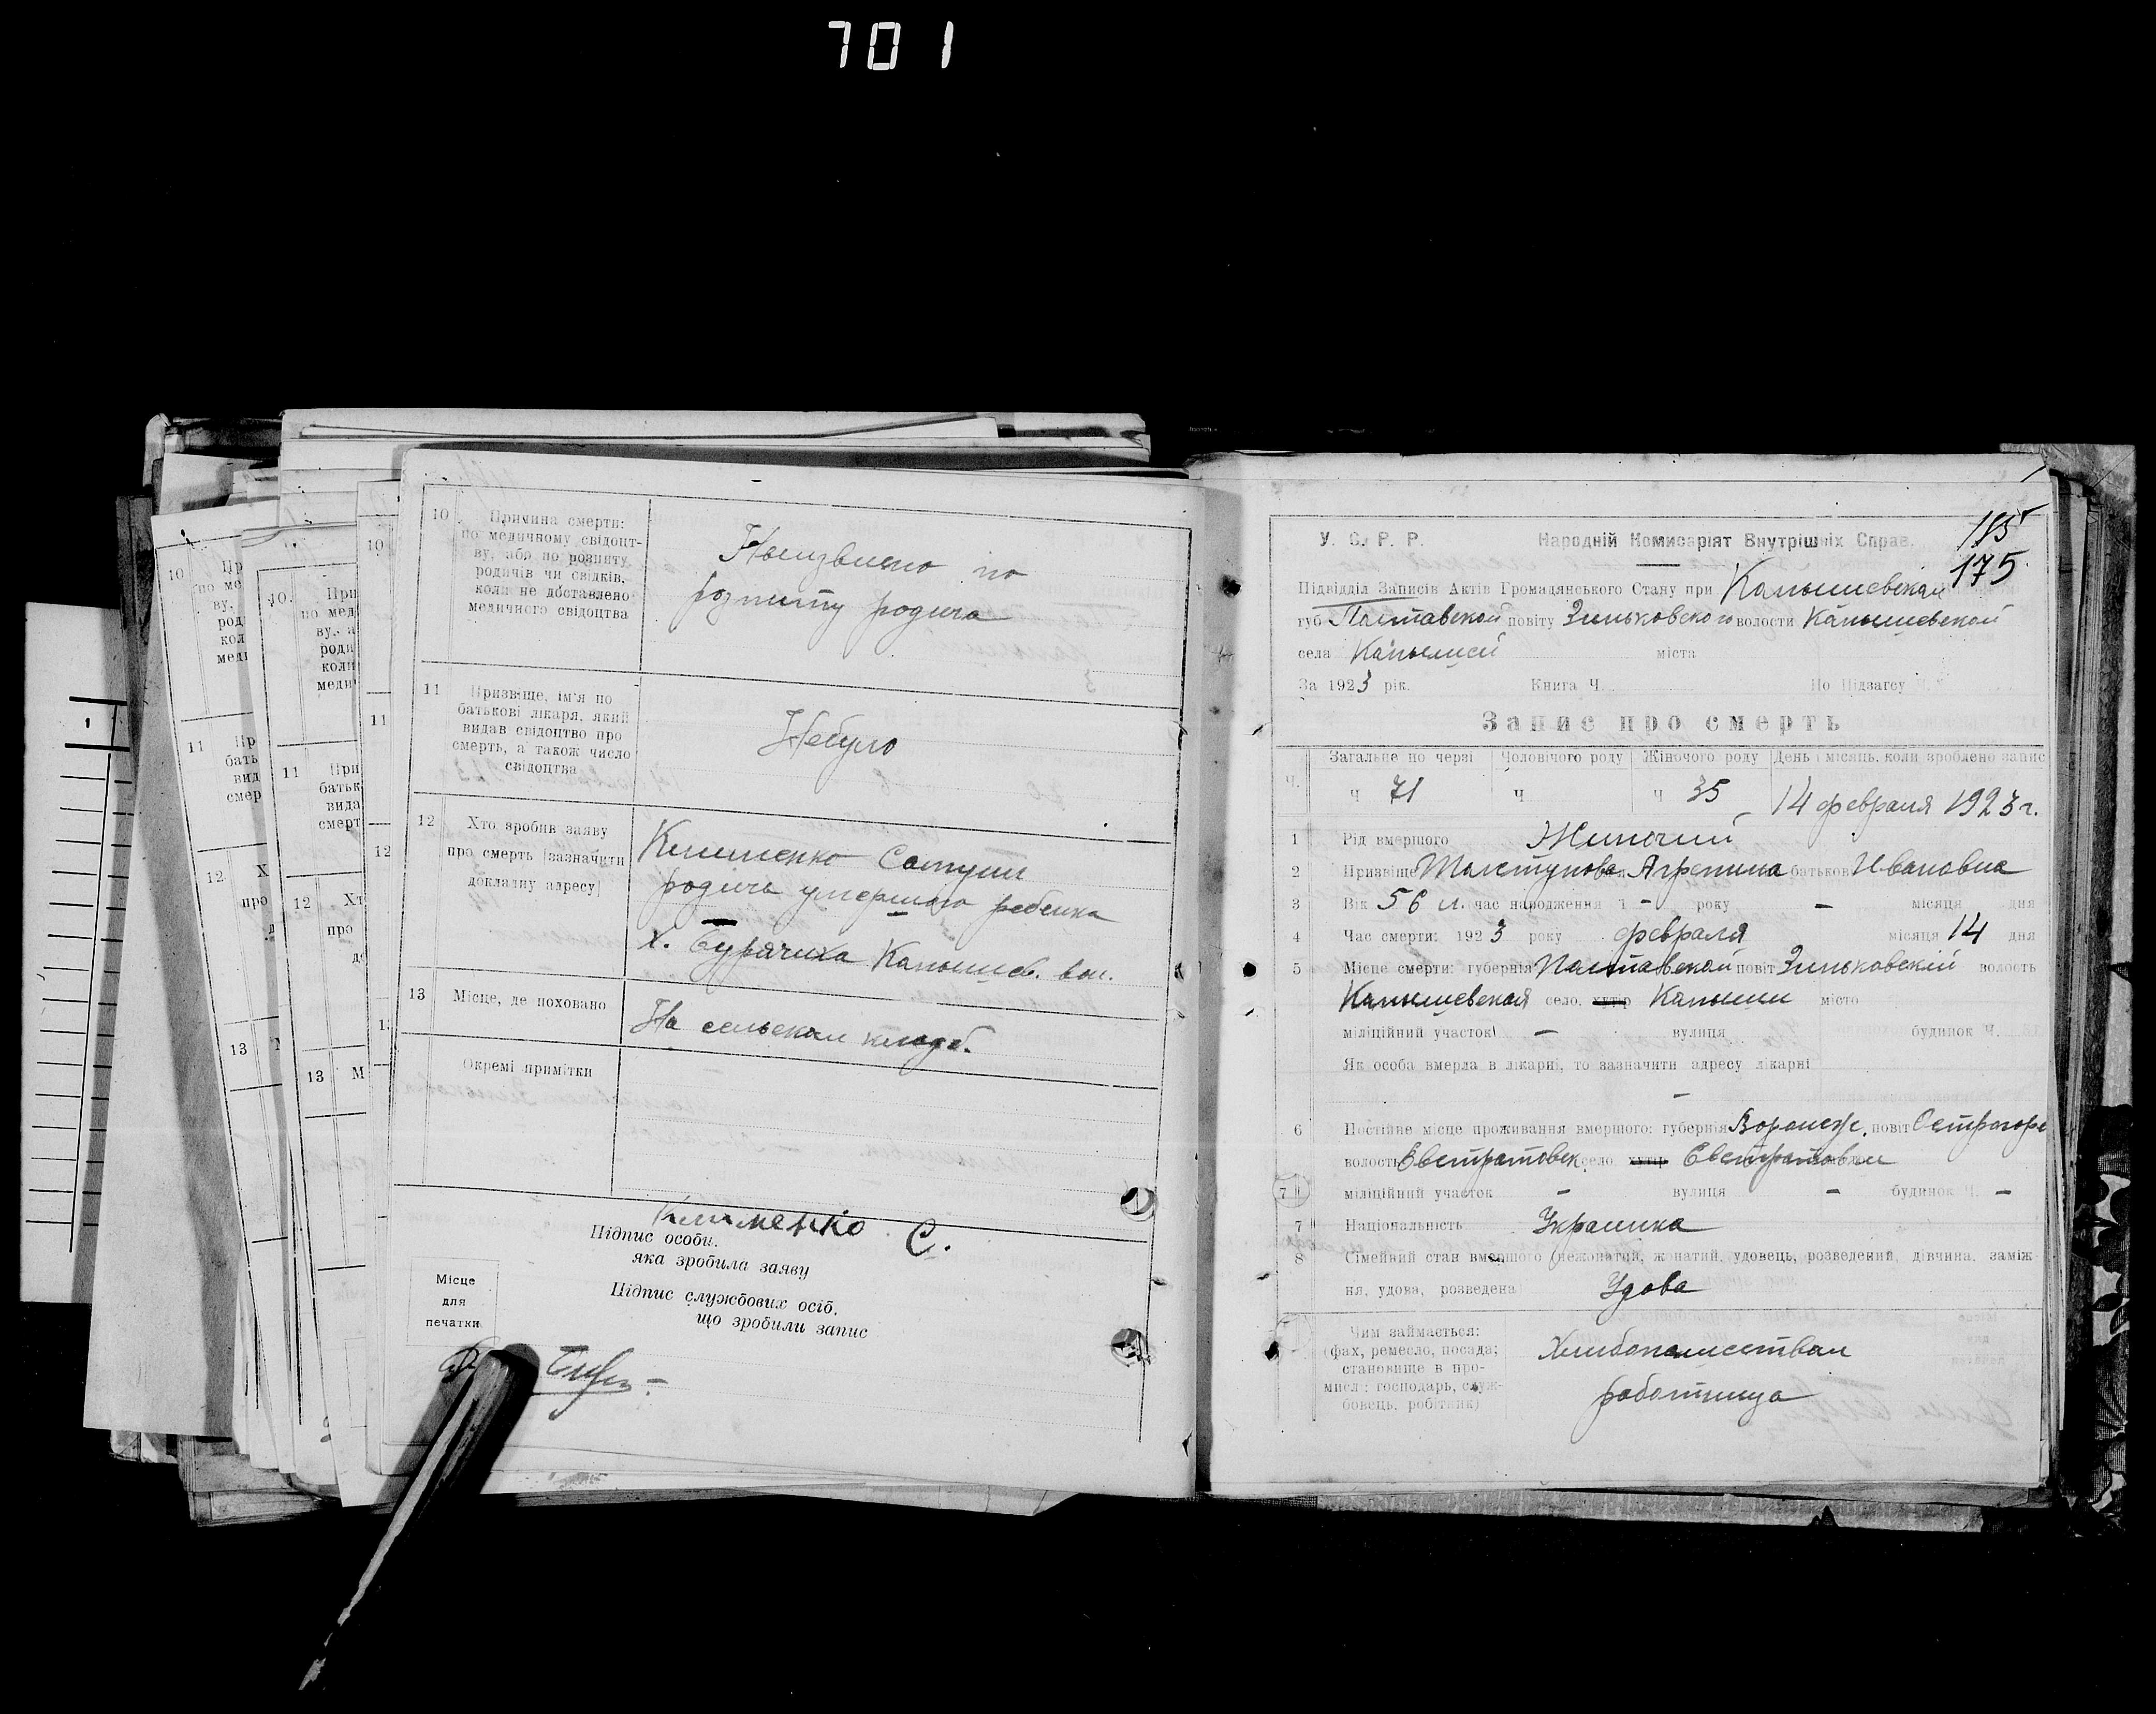 701
10 Причина смерти:
по медичному свідоцт-
ву, або по розпиту
родичів чи свідків,
коли не доставлено
медичного свідоцтва
по
розпиту родича
11 Призвіще, ім'я по
батькові лікаря, який
видав свідоцтво про
смерть, а також число
свідоцтва
Небуло
12 Хто зробив заяву
про смерть (зазначити
докладну адресу)
Клименко
родичь умершого ребенка
х. Бурячиха Капышев. вол.
13 Місце, де поховано
На сельском кладб.
Окремі примітки
Клименко С.
Підпис особи,
яка зробила заяву
Підпис службових осіб,
що зробили запис
Місце
для
печатки
У. С. Р. Р. Народній Комисаріят Внутрішніх Справ.
175
Підвідділ Записів Актів Громадянського Стану при Капышевской
губ Полтавской повіту Зиньковского волости Капышевской
села міста
За 1923 рік. Книга Ч. По Підзагсу Ч.
Запис про смерть
Ч. Загальне по черзі Чоловічого роду Жіночого роду День і місяць, коли зроблено запис
Ч 71 Ч Ч 35 14 февраля 1923 г.
1 Рід вмершого Жиночий
2 Призвіще Агрепина батьков Ивановна
3 Вік 56 л. час народження 1 - року - місяця дня
4 Час смерти: 1923 року февраля місяця 14 дня
5 Місце смерти: губернія Полтавской повіт Зиньковский волость
Капышевская село, хутір Капыши місто
міліційний участок - вулиця будинок Ч.
Як особа вмерла в лікарні, то зазначити адресу лікарні
-
6 Постійне місце проживання вмершого: губернія Воронеж. повіт Острогорс
волость Евстратовск село хутір Евстратовки
міліційний участок - вулиця - будинок Ч. -
7 Національність Украинка
8 Сімейний стан вмершого (нежонатий, жонатий, удовець, розведений, дівчина, заміж-
ня, удова, розведена Удова
Чим займається:
(фах, ремесло, посада;
становище в про-
мислі: господарь, служ-
бовець, робітник)
работница